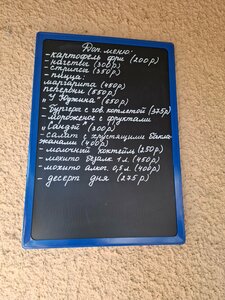 Доп. меню:
- картофель фри (200 р)
- нагетсы (300 р)
- стрипсы (350 р)
- пицца:
маргарита (450р)
пеперони (550р)
"У Кузьмича" (650р)
- Бургеры с гов. котлетой (375р)
- Мороженое с фруктами
"Сандэй" (300р)
- Салат с хрустящими бакла-
жанами (400р)
- молочный коктейль (250р)
- мохито безалк. 1л. (450р)
- мохито алког. 0,5л (400р)
- десерт дня (275р)